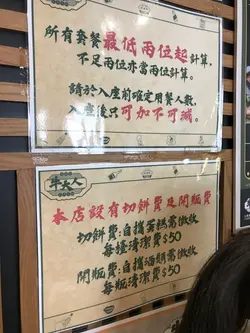 所有套餐最低兩位起計算，
不足兩位亦當兩位計算。
請於入座前確定用餐人數，
入座後只可加不可減。
牛大人
本店設有切餅費及開瓶費
切餅費：自攜蛋糕需徵收
每檯清潔費$50
開瓶費：自攜酒類需徵收
每瓶清潔費$50